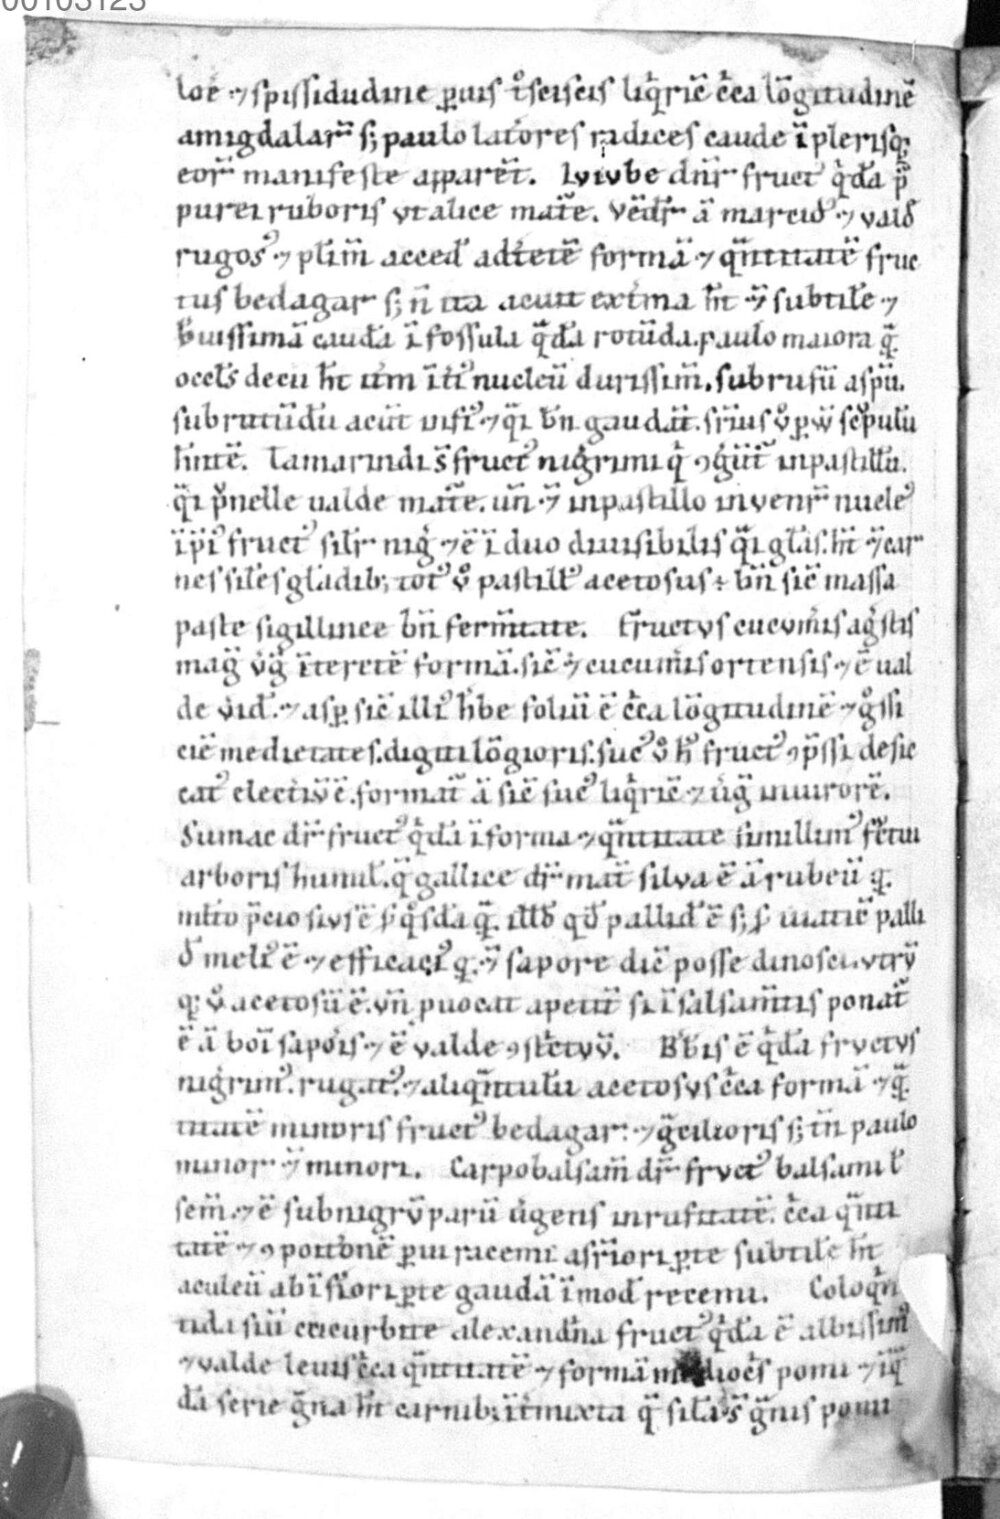 00103123
loe ⁊ spissidudine ꝑuis t̄ scīscis liq̄rie c̄ca lōgitudinē
amigdalar̄ s; paulo latiores radices caude ī plerisq;
eor̄ manifeste apparēt. Iviube dn̄r fruct᾽ q̄da p̄
purei ruboris vt alice mat̄e. vēdr̄ ā marcid᾽ ⁊ vald
rugos᾽ ⁊ plīm̄ acced̄ ad t̄etē formā ⁊ q̄ntitatē fruc
tus bedagar s; n̄ ita acuit extima h̄t ⁊ subtile ⁊
b̄uissimā caudā ī fossula q̄dā rotūda. paulo maiora q̄
ocel᾽s decu h̄t itm ī t᾽ nucleū durissim̄. subrufū aspū.
subrutūdū acūt
h̄ntē. Tamarindi s̄ fruct᾽ nigrimi q̄ ꝯgūt᾽ in pastillū.
q̄i p̄nelle ualde mat̄e. un̄ ⁊ in pastillo invenr̄ nucle᾽
īp̄i᾽ fruct᾽ silr̄ nig᾽ ⁊ ē ī duo diuisibilis q̄i glās. h̄t ⁊ car
nes siles gladib; tot᾽ v̊ pastill᾽ acetosus ÷ bn̄ sic̄ massa
paste sigillince bn̄ ferm̄tate. Fructvs cucvmis ag᾽stis
maḡ v᾽g᾽ īteretē formā. sic̄ ⁊ cucumis ortensis ⁊ ē ual
de vid̄. ⁊ asꝑ sic̄ illi᾽ h᾽be foliū ē c̄ca lōgitudinē ⁊ g᾽ssi
ciē medietates. digiti lōgioris. suc᾽ v̊ h᾽ fruct᾽ ꝯp̄ssi desic
cat᾽ electiv̄ē. format᾽ ā sic̄ suc᾽ liq̄rie ⁊ ūg᾽
Sumac dr̄ fruct᾽ q̄dā ī forma ⁊ q̄ntitate simillim᾽
arboris humil᾽. q̄ gallice dr̄ mat᾽ silva ē ā rubeū q.
mlto p̄cio siv sē ꝑ q᾽sdā q̄. illd̄ qd̄ pallid᾽ ē s;
d᾽ meli᾽ ē ⁊ efficaci᾽ q. ⁊ sapore dic̄ posse dinosci. vtrv̄
q; v̊ acetosū ē. vn̄ puocat apetit̄ si ī salsam̄tis ponat᾽
ē ā boī sapōis ⁊ ē valde ꝯst᾽ctvv̄. B᾽b᾽is ē q̄dā frvctvs
nig᾽rim᾽. rugat᾽. ⁊ aliq̄ntulū acetosvs c̄ca formā ⁊ q̄
titatē minoris fruct᾽ bedagar. ⁊ ḡcilioris s; tn̄ paulo
minor ⁊ minori. Carpobalsam̄ dr̄ frvct᾽ balsami l᾽
sem̄. ⁊ ē subnigrv̄ parū v᾽gens in rufitatē. c̄ca q̄nti
tatē ⁊ ꝯpotionē ꝑui racemi asp᾽iori ꝑte subtile h̄t
aculeū ab īf᾽iori ꝑte gaudā ī mod̄ recemi. Coloq̄n
tida siū cucurbite alexandrina fruct᾽ q̄dā ē albissim᾽
⁊ valde levis c̄ca q̄ntitatē ⁊ formā mediocis pomi ⁊ īq̄
dā serie ḡna h̄t carnib; īt᾽mixta q̄ silā s̄ ḡnis pomi